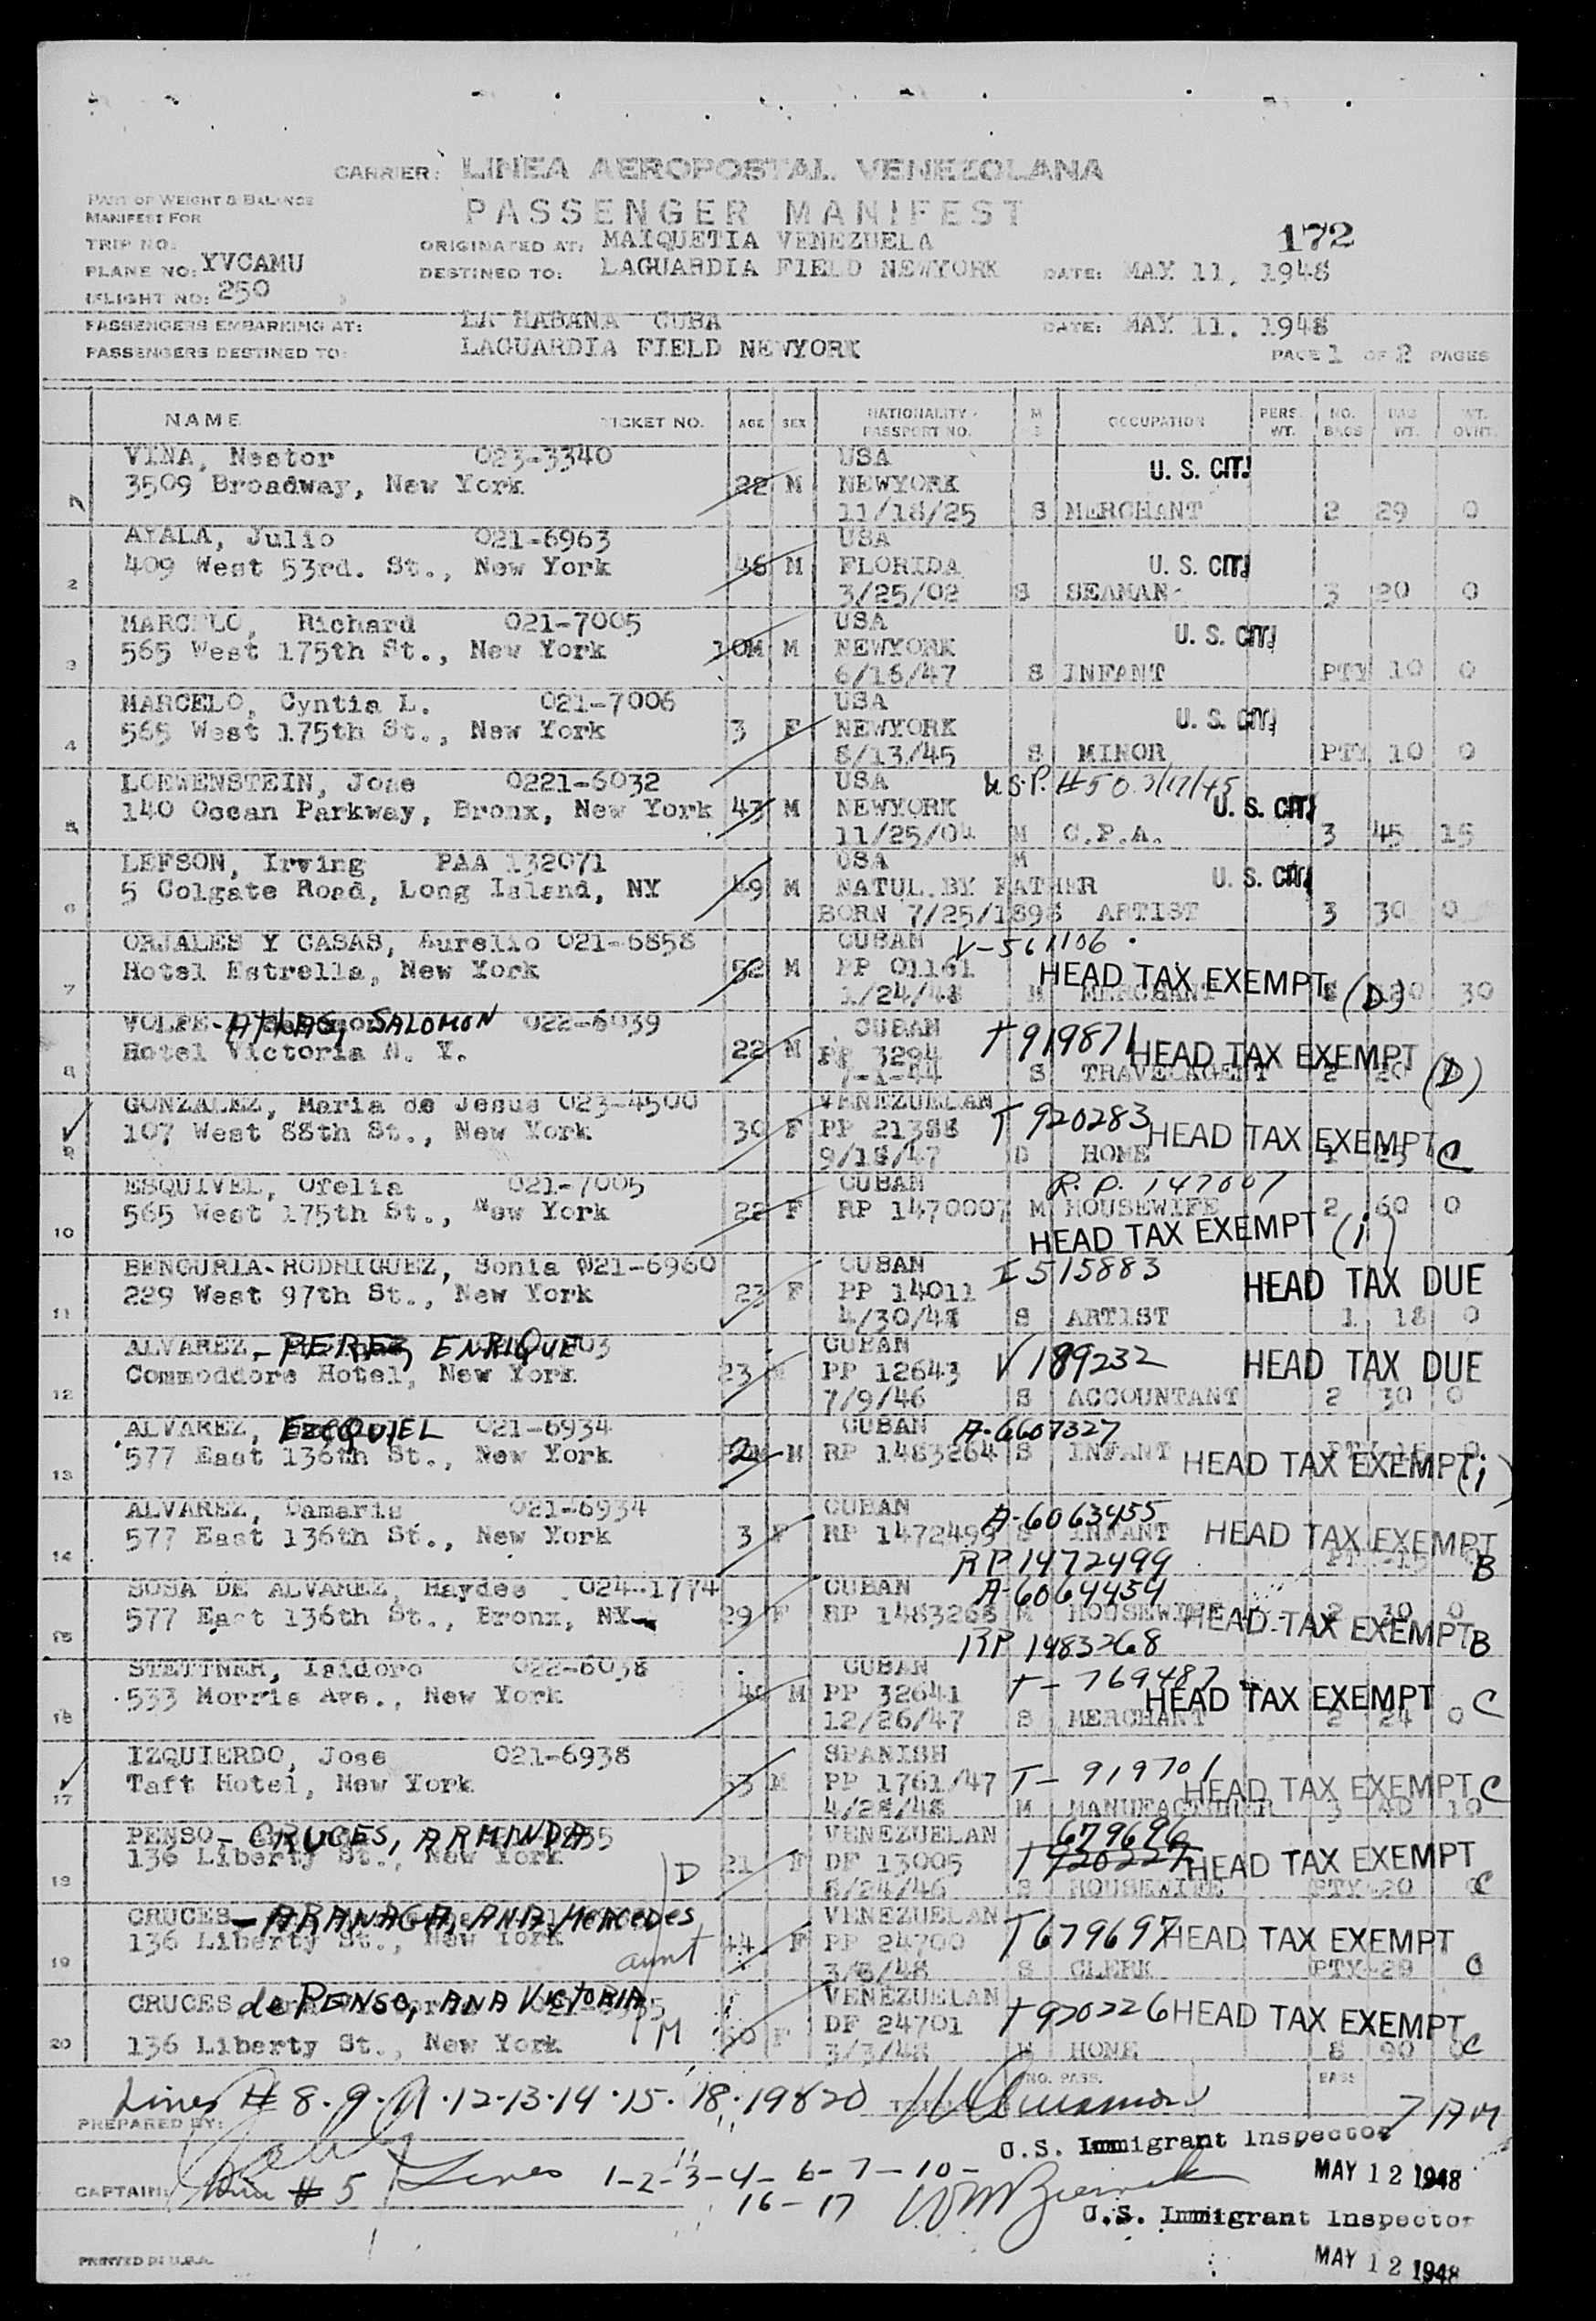 CARRIER: LINEA AEROPOSTAL VENEZOLANA
PART OF WEIGHT & BALANCE
MANIFEST FOR
PASSENGER MANIFEST
172
TRIP NO.
ORIGINATED AT: MAIQUETIA VENEZUELA
PLANE NO: YVCAMU
DESTINED TO: LAGUARDIA FIELD NEWYORK DATE: MAY 11, 1948
FLIGHT NO: 250
PASSENGERS EMBARKING AT: LA HABANA CUBA DATE: MAY 11. 1948
PASSENGERS DESTINED TO: LAGUARDIA FIELD NEWYORK
PAGE 1 OF 2 PAGES
NAME TICKET NO. AGE SEX NATIONALITY - PASSPORT NO. M S OCCUPATION PERS. WT. NO. BAGS BAG WT. WT. OVHT.
VINA, Nestor 023-3340 USA
3509 Broadway, New York 22 M NEWYORK U. S. CIT.
11/18/25 S MERCHANT 2 29 0
AYALA, Julio 021-6963 USA
2 409 West 53rd. St., New York 46 M FLORIDA U. S. CIT.
3/25/02 S SEAMAN 3 20 0
MARCELO, Richard 021-7005 USA
3 565 West 175th St., New York 10M M NEWYORK U. S. CIT.
6/16/47 S INFANT PTY 10 0
MARCELO, Cyntia L. 021-7006 USA
4 565 West 175th St., New York 3 F NEWYORK U. S. CIT.
8/13/45 S MINOR PTY 10 0
LOEWENSTEIN, Jose 0221-6032 USA U.S.P. #50 3/17/45
5 140 Ocean Parkway, Bronx, New York 43 M NEWYORK U. S. CIT.
11/25/04 M C.P.A. 3 45 15
LEFSON, Irving PAA 132071 USA M
6 5 Colgate Road, Long Island, NY 49 M NATUL. BY FATHER U. S. CIT.
BORN 7/25/1898 ARTIST 3 30 0
ORJALES Y CASAS, Aurelio 021-6858 CUBAN V-561106
7 Hotel Estrella, New York 52 M PP 01161 HEAD TAX EXEMPT (D)
1/24/48 M MERCHANT 30
VOLPE-ATHAS, SALOMON 022-6039 CUBAN T919871
8 Hotel Victoria N. Y. 22 M PP 3294 HEAD TAX EXEMPT (D)
7-1-44 S TRAVELAGENT 2 20
GONZALEZ, Maria de Jesus 023-4500 VENEZUELAN T 920283
9 107 West 88th St., New York 30 F PP 21388 HEAD TAX EXEMPT C
9/18/47 D HOME 1
ESQUIVEL, Ofelia 021-7005 CUBAN R.P. 147007
10 565 West 175th St., New York 22 F RP 1470007 M HOUSEWIFE 2 60 0
HEAD TAX EXEMPT (i)
BENGURIA-RODRIGUEZ, Sonia 021-6960 CUBAN I515883
11 229 West 97th St., New York 23 F PP 14011 HEAD TAX DUE
4/30/48 S ARTIST 1 18 0
ALVAREZ - PEREZ, ENRIQUE 03 CUBAN V189232
12 Commoddore Hotel, New York 23 M PP 12643 HEAD TAX DUE
7/9/46 S ACCOUNTANT 2 30 0
ALVAREZ, EZEQUIEL 021-6934 CUBAN A-6607327
13 577 East 136th St., New York 2 M RP 1483264 S INFANT HEAD TAX EXEMPT (i)
ALVAREZ, Damaris 021-6934 CUBAN A-6063455
14 577 East 136th St., New York 3 F RP 1472499 S INFANT HEAD TAX EXEMPT
RP 1472499 B
SOSA DE ALVAREZ, Haydee 024-1774 CUBAN A-6064454
15 577 East 136th St., Bronx, NY 29 F RP 1483268 M HOUSEWIFE 2 30 0 HEAD TAX EXEMPT B
RP 1483268
STETTNER, Isidoro 022-6038 CUBAN T-769487
16 533 Morris Ave., New York 40 M PP 32641 HEAD TAX EXEMPT C
12/26/47 S MERCHANT 2 24 0
IZQUIERDO, Jose 021-6938 SPANISH
17 Taft Hotel, New York 53 M PP 1761/47 T-919701 HEAD TAX EXEMPT C
4/28/48 M MANUFACTURER 3 40 10
PENSO - CRUCES, ARMINDA VENEZUELAN 679696
136 Liberty St., New York D 21 F DF 13005 T 920227 HEAD TAX EXEMPT
8/24/46 S HOUSEWIFE PTY 20 C
CRUCES - ARANAGA, ANA Mercedes VENEZUELAN
19 136 Liberty St., New York aunt 44 F PP 24700 T679697 HEAD TAX EXEMPT
3/3/48 S CLERK PTY 29 C
CRUCES de PENSO, ANA VICTORIA VENEZUELAN T920226 HEAD TAX EXEMPT
20 136 Liberty St., New York M 50 F DF 24701
3/3/48 HOME 8 90 C
Lines # 8.9.11.12-13-14.15.18.19&20 NO. PASS. BAGS
PREPARED BY: 7 AM
U.S. Immigrant Inspector
Line # 5 Lines 1-2-3-4-6-7-10- MAY 12 1948
CAPTAIN: 16-17
U.S. Immigrant Inspector
PRINTED IN U.S.A. MAY 12 1948